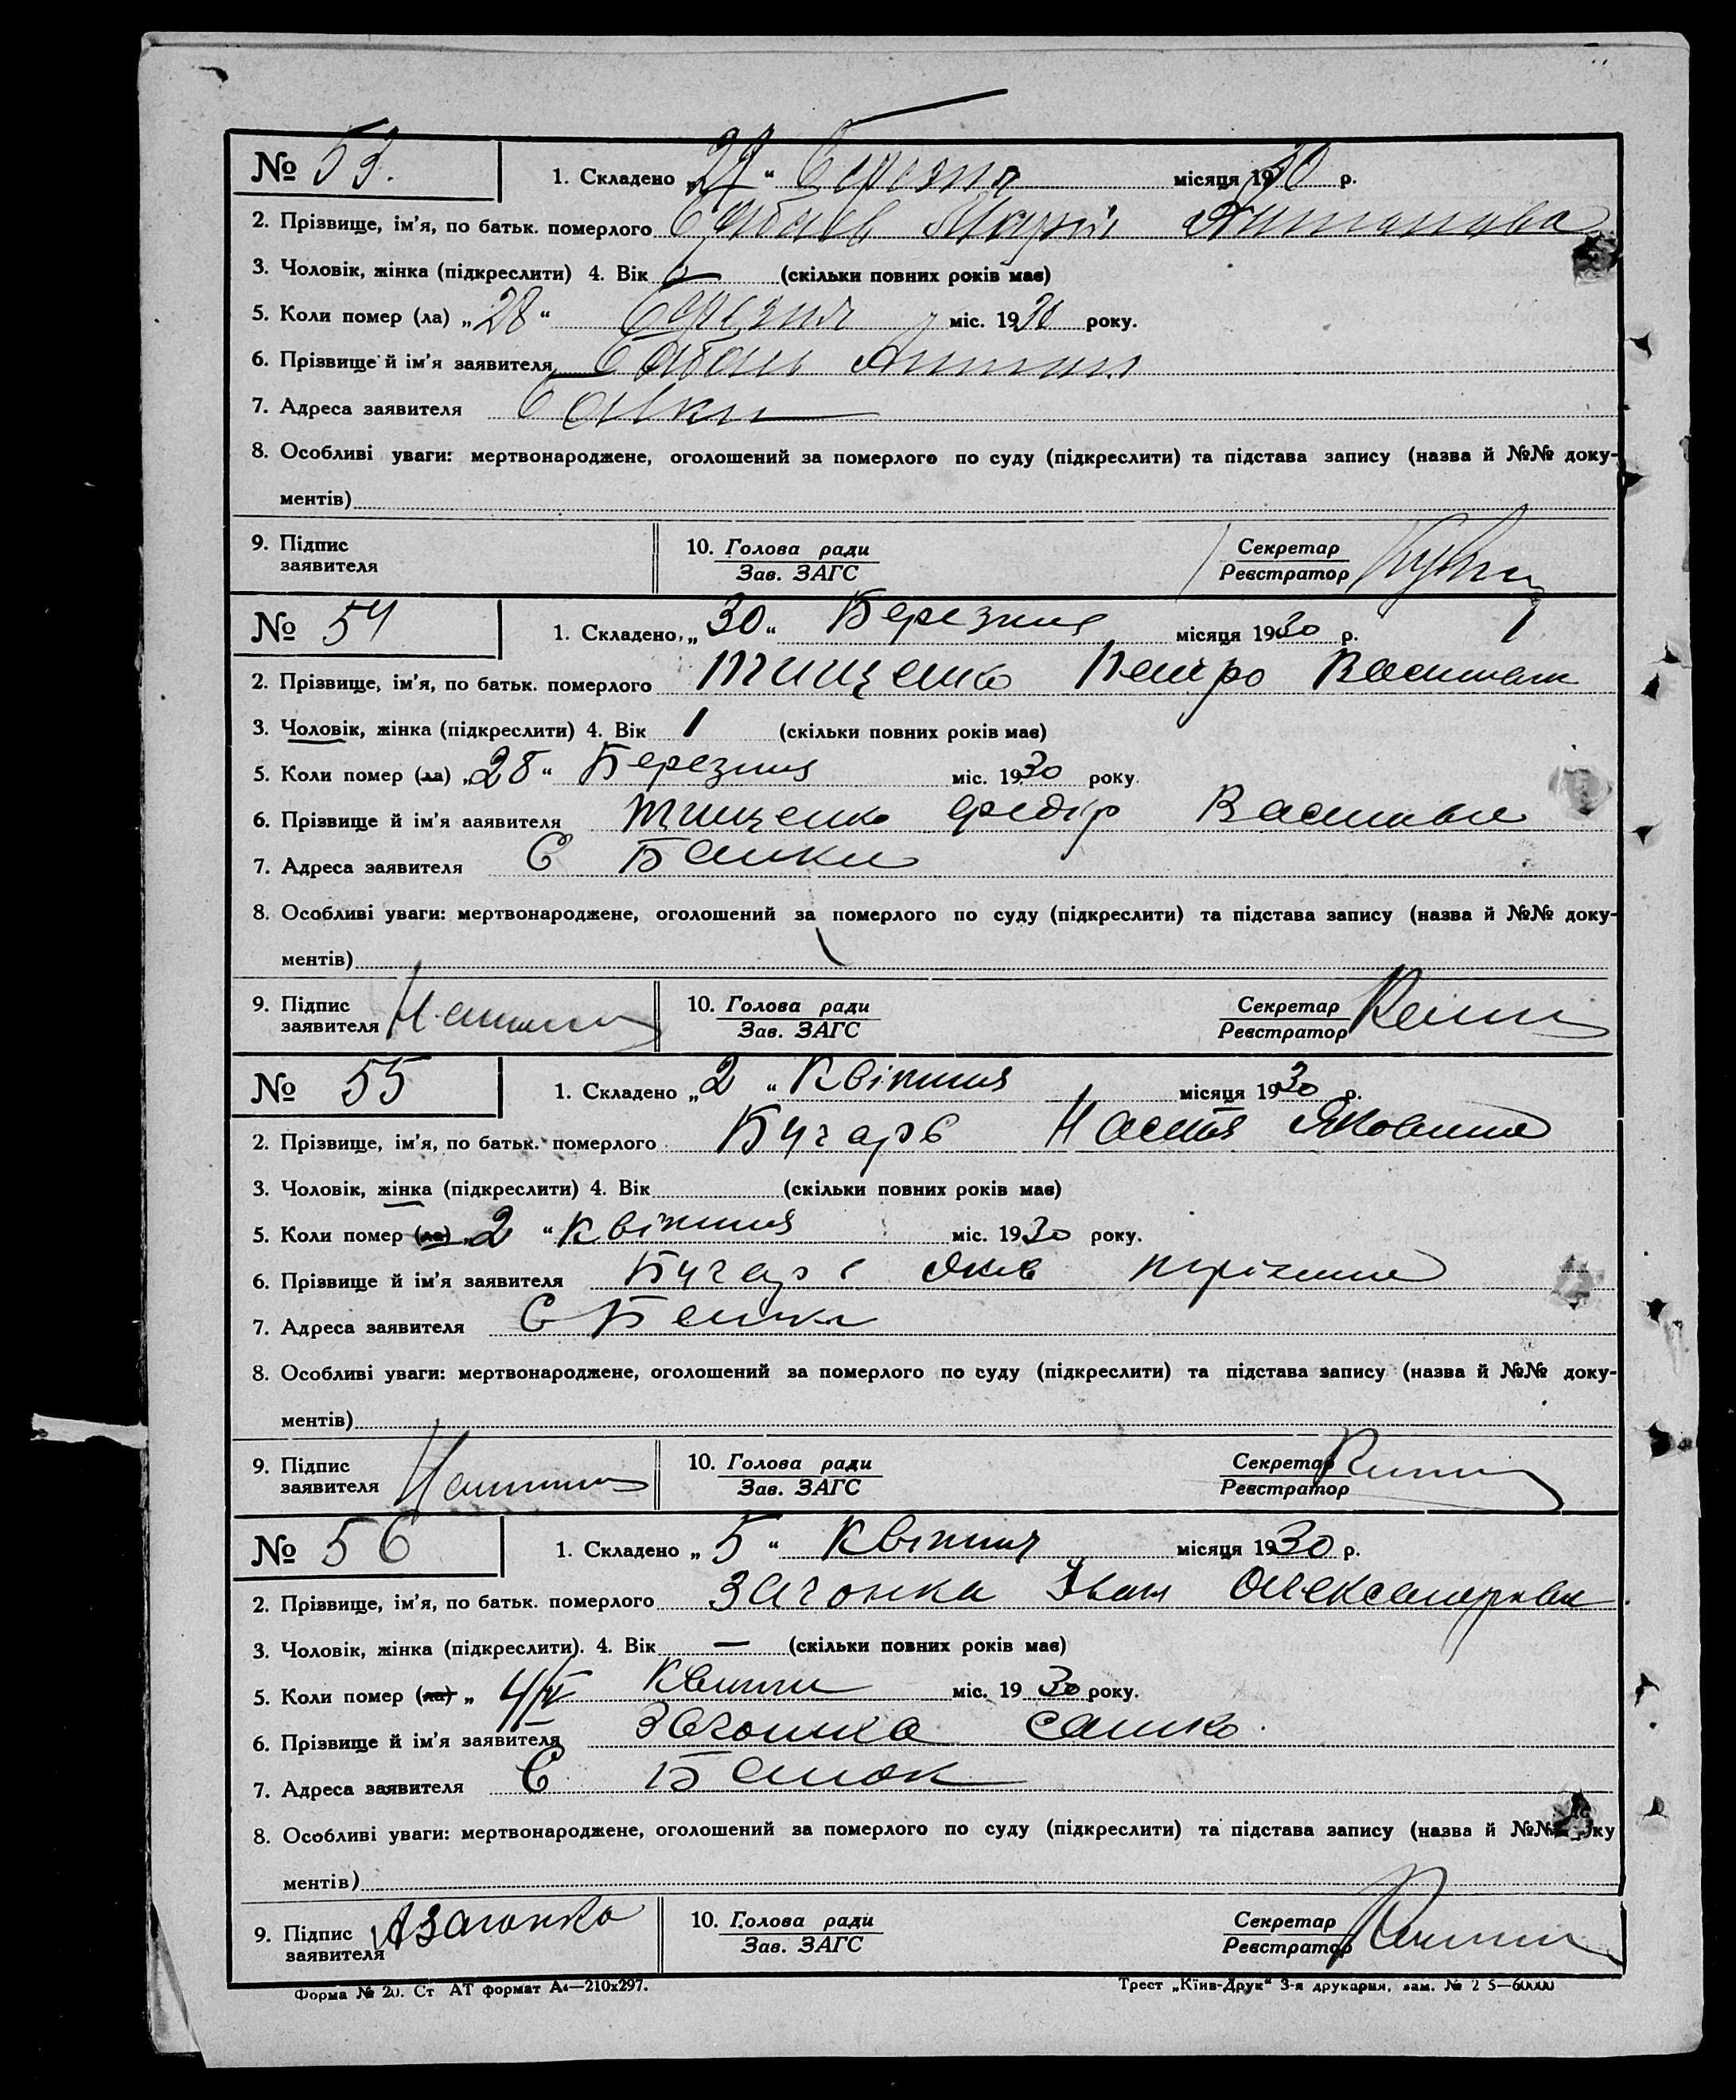 № 53. 1. Складено „29“ Березня місяця 1930 р.
2. Прізвище, ім'я, по батьк. померлого
3. Чоловік, жінка (підкреслити) 4. Вік — (скільки повних років має)
5. Коли помер (ла) „28“ Березня міс. 1930 року.
6. Прізвище й ім'я заявителя
7. Адреса заявителя Балки
8. Особливі уваги: мертвонароджене, оголошений за померлого по суду (підкреслити) та підстава запису (назва й №№ доку-
ментів)
9. Підпис заявителя 10. Голова ради Зав. ЗАГС Секретар Реєстратор
№ 54 1. Складено, „30“ Березня місяця 1930 р.
2. Прізвище, ім'я, по батьк. померлого Тищенко Петро Васильев
3. Чоловік, жінка (підкреслити) 4. Вік 1 (скільки повних років має)
5. Коли помер (ла) „28“ Березня міс. 1930 року.
6. Прізвище й ім'я ааявителя Тищенко Федір Васильев
7. Адреса заявителя С Балки
8. Особливі уваги: мертвонароджене, оголошений за померлого по суду (підкреслити) та підстава запису (назва й №№ доку-
ментів)
9. Підпис заявителя 10. Голова ради Зав. ЗАГС Секретар Реєстратор
№ 55 1. Складено „2“ Квітня місяця 1930 р.
2. Прізвище, ім'я, по батьк. померлого Бугарь Настя Яковлина
3. Чоловік, жінка (підкреслити) 4. Вік (скільки повних років має)
5. Коли помер (ла) „2“ Квітня міс. 1930 року.
6. Прізвище й ім'я заявителя Бугарь Яков
7. Адреса заявителя С Балки
8. Особливі уваги: мертвонароджене, оголошений за померлого по суду (підкреслити) та підстава запису (назва й №№ доку-
ментів)
9. Підпис заявителя 10. Голова ради Зав. ЗАГС Секретар Реєстратор
№ 56 1. Складено „5“ Квітня місяця 1930 р.
2. Прізвище, ім'я, по батьк. померлого Загонка Іван Олександрович
3. Чоловік, жінка (підкреслити). 4. Вік — (скільки повних років має)
5. Коли помер (ла) „ 4/IV Квітня міс. 1930 року.
6. Прізвище й ім'я заявителя Загонка Сашко.
7. Адреса заявителя С Балок
8. Особливі уваги: мертвонароджене, оголошений за померлого по суду (підкреслити) та підстава запису (назва й №№ доку
ментів)
9. Підпис заявителя А Загонка 10. Голова ради Зав. ЗАГС Секретар Реєстратор
Форма № 20. Ст АТ формат А4—210х297. Трест „Київ-Друк“ 3-я друкарня, зам. № 2 5—60000